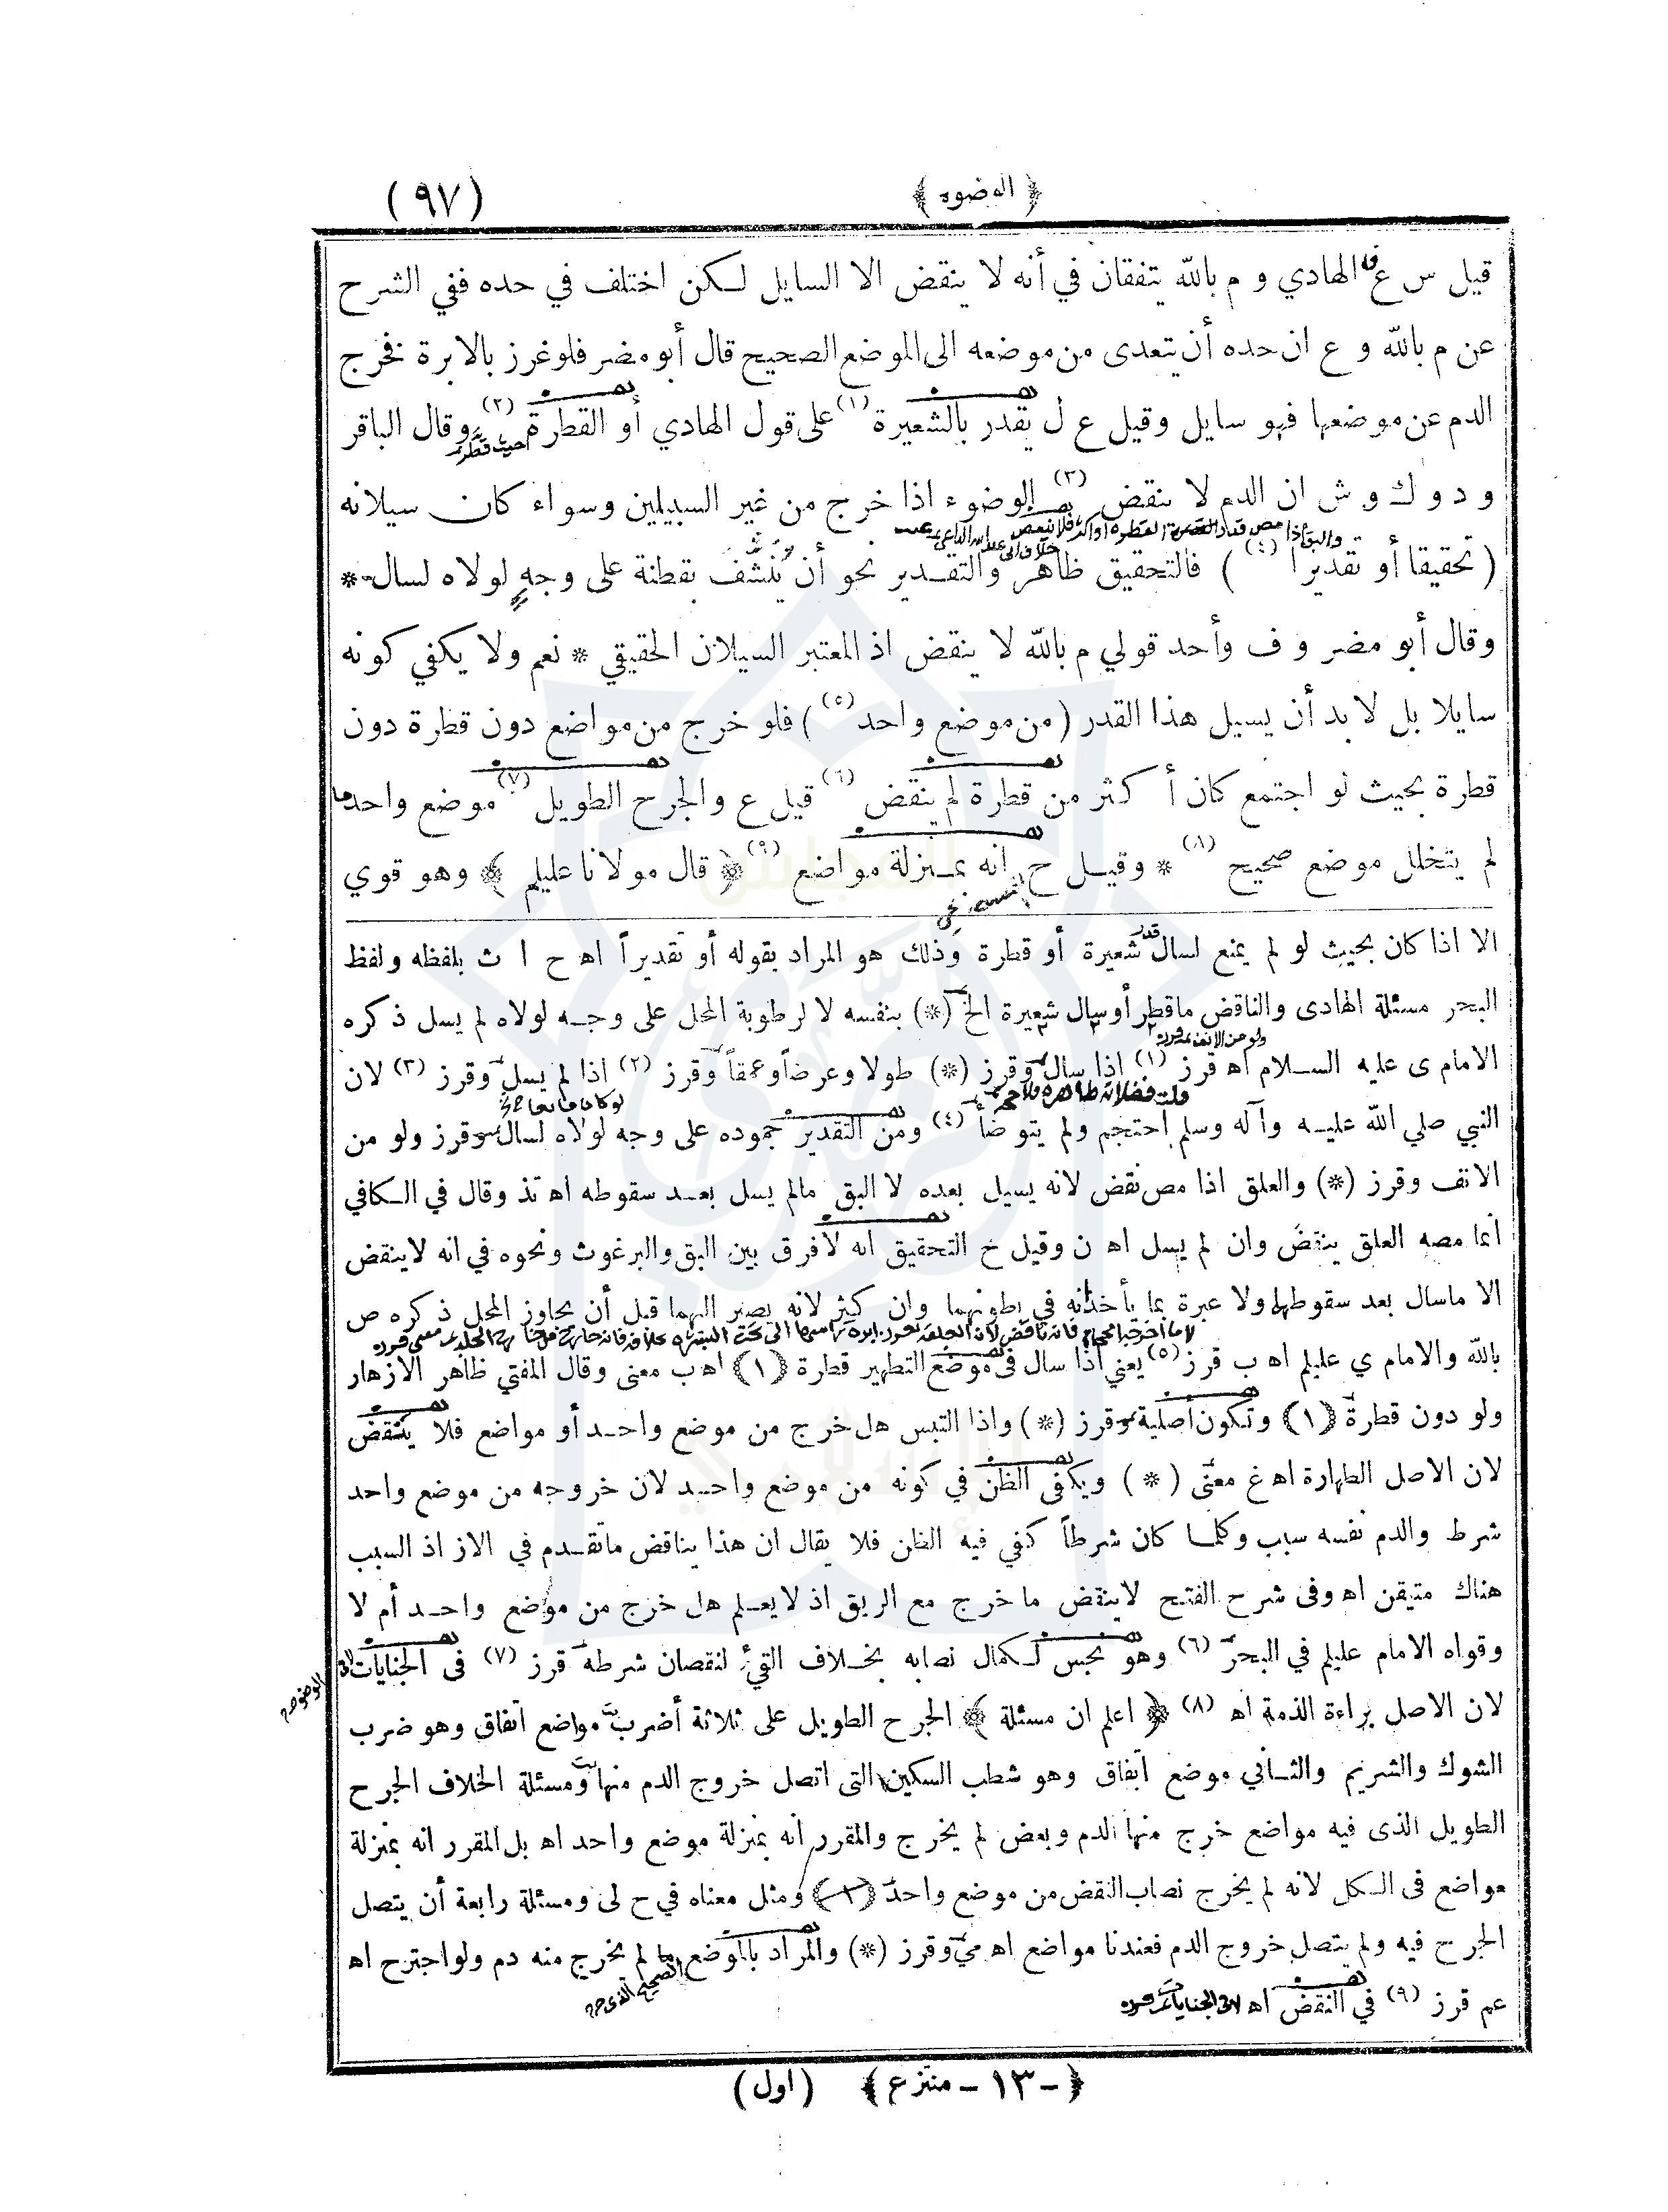 ﴿ الوضوء ﴾ (٩٧)
قيل س ع الهادي و م بالله يتفقان في أنه لا ينقض الا السايل لكن اختلف في حده ففي الشرح
عن م بالله و ع ان حده أن يتعدى من موضعه الى الموضع الصحيح قال أبو مضر فلو غرز بالابرة فخرج
الدم عن موضعها فهو سايل وقيل ع ل يقدر بالشعيرة (١) على قول الهادي أو القطرة (٢) وقال الباقر
و د و ك و ش ان الدم لا ينقض (٣) الوضوء اذا خرج من غير السبيلين وسواء كان سيلانه
(تحقيقا أو تقديرا (٤) ) فالتحقيق ظاهر والتقدير نحو أن يُنشَّف بقطنة على وجه لولاه لسال *
وقال أبو مضر و ف وأحد قولي م بالله لا ينقض اذ المعتبر السيلان الحقيقي * نعم ولا يكفي كونه
سايلا بل لا بد أن يسيل هذا القدر (من موضع واحد (٥) ) فلو خرج من مواضع دون قطرة دون
قطرة بحيث لو اجتمع كان أكثر من قطرة لم ينقض (٦) قيل ع والجرح الطويل (٧) موضع واحد ما
لم يتخلل موضع صحيح (٨) * وقيل ح انه بمنزلة مواضع (٩) ﴿ قال مولانا عليلم ﴾ وهو قوي
الا اذا كان بحيث لو لم يمنع لسال قدر شعيرة أو قطرة وذلك هو المراد بقوله أو تقديراً اه ح ا ث بلفظه ولفظ
البحر مسئلة الهادى والناقض ماقطر أو سال شعيرة الخ (*) بنفسه لا لرطوبة المحل على وجه لولاه لم يسل ذكره
الامام ى عليه السلام اه قرز (١) اذا سال وقرز (*) طولا وعرضاً وعمقاً وقرز (٢) اذا لم يسل وقرز (٣) لان
النبي صلي الله عليه وآله وسلم احتجم ولم يتوضأ (٤) ومن التقدير جموده على وجه لولاه لسال وقرز ولو من
الانف وقرز (*) والعلق اذا مص نقض لانه يسيل بعده لا البق مالم يسل بعد سقوطه اه تذ وقال في الكافي
انما مصه العلق ينقض وان لم يسل اه ن وقيل خ التحقيق انه لا فرق بين البق والبرغوث ونحوه في انه لا ينقض
الا ماسال بعد سقوطها ولا عبرة بما يأخذانه في بطونهما وان كثر لانه يصير اليهما قبل أن يجاوز المحل ذكره ص
بالله والامام ي عليلم اه ب قرز (٥) يعني اذا سال فى موضع التطهير قطرة (١) اه ب معنى وقال المفتي ظاهر الازهار
ولو دون قطرة (١) وتكون أصلية وقرز (*) واذا التبس هل خرج من موضع واحد أو مواضع فلا ينتقض
لان الاصل الطهارة اه غ معنى (*) ويكفى الظن في كونه من موضع واحد لان خروجه من موضع واحد
شرط والدم نفسه سبب وكلما كان شرطاً كفي فيه الظن فلا يقال ان هذا يناقض ماتقدم في الاز اذ السبب
هناك متيقن اه وفى شرح الفتح لاينقض ما خرج مع الريق اذ لايعلم هل خرج من موضع واحد أم لا
وقواه الامام عليلم في البحر (٦) وهو نجس لكمال نصابه بخلاف القيء لنقصان شرطه قرز (٧) فى الجنايات
لان الاصل براءة الذمة اه (٨) ﴿ اعلم ان مسئلة ﴾ الجرح الطويل على ثلاثة أضرب مواضع اتفاق وهو ضرب
الشوك والشريم والثاني موضع اتفاق وهو شطب السكين التى اتصل خروج الدم منها ومسئلة الخلاف الجرح
الطويل الذى فيه مواضع خرج منها الدم وبعض لم يخرج والمقرر انه بمنزلة موضع واحد اه بل المقرر انه بمنزلة
مواضع فى الكل لانه لم يخرج نصاب النقض من موضع واحد (١) ومثل معناه في ح لى ومسئلة رابعة أن يتصل
الجرح فيه ولم يتصل خروج الدم فعندنا مواضع اه مي وقرز (*) والمراد بالموضع الصحيح الذى ما لم يخرج منه دم ولو اجترح اه
عم قرز (٩) في النقض اه لا في الجنايات
﴿ - ١٣ - منتزع ﴾ (اول)